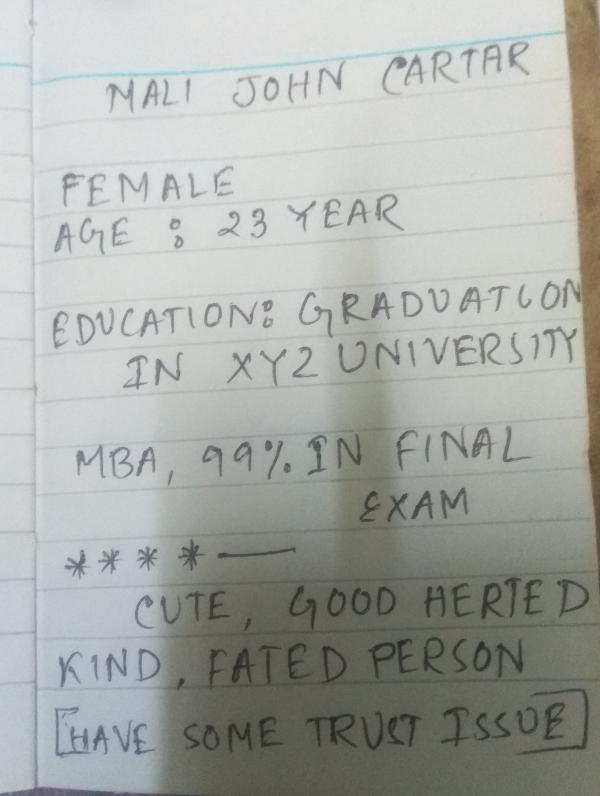 MALI JOHN CARTAR
FEMALE
AGE : 23 YEAR
EDUCATION: GRADUATION
IN XYZ UNIVERSITY
MBA, 99% IN FINAL
EXAM
****—
CUTE, GOOD HERTED
KIND, FATED PERSON
[HAVE SOME TRUST ISSUE]